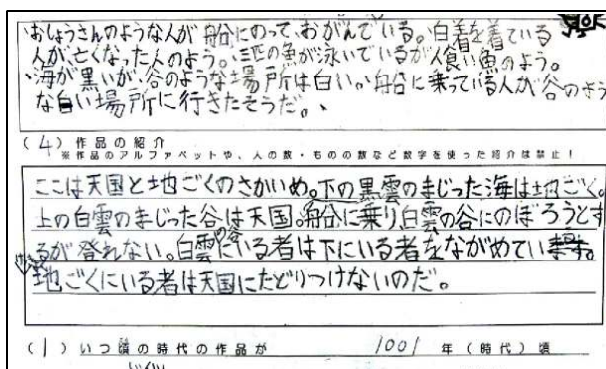 おしょうさんのような人が船にのって、おがんでいる。白着を着ている
人が亡くなった人のよう。三匹の魚が泳いでいるが人食い魚のよう。
海が黒いが、谷のような場所は白い。船に乗っている人が谷のよう
な白い場所に行きたそうだ。
(4)作品の紹介
※作品のアルファベットや、人の数・ものの数など数字を使った紹介は禁止!
ここは天国と地ごくのさかいめ。下の黒雲のまじった海は地ごく。
上の白雲のまじった谷は天国。船に乗り白雲の谷にのぼろうとす
るが登れない。白雲の谷にいる者は下にいる者をながめてい
地ごくにいる者は天国にたどりつけないのだ。
(1)いつ頃の時代の作品か 1001 年(時代)頃